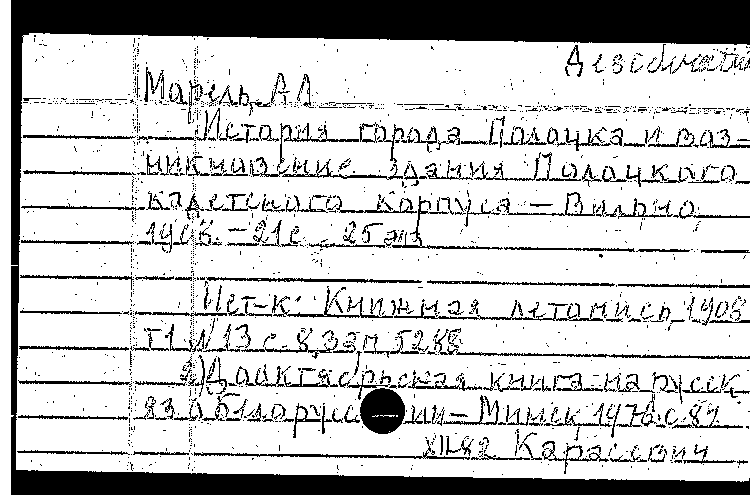 Марель, А.А
История города Полоцка и воз-
никновение здания Полоцкого
кадетского корпуса – Вильно,
190х. – 21 с., 25 экз
Ист-к: Книжная летопись, 1908
т1 N 13 с. 8, зап. 5288
2) Дооктябрьская книга на русск.
яз о Белорусс ии – Минск, 1976. с. 87
XII-82 Карасевич